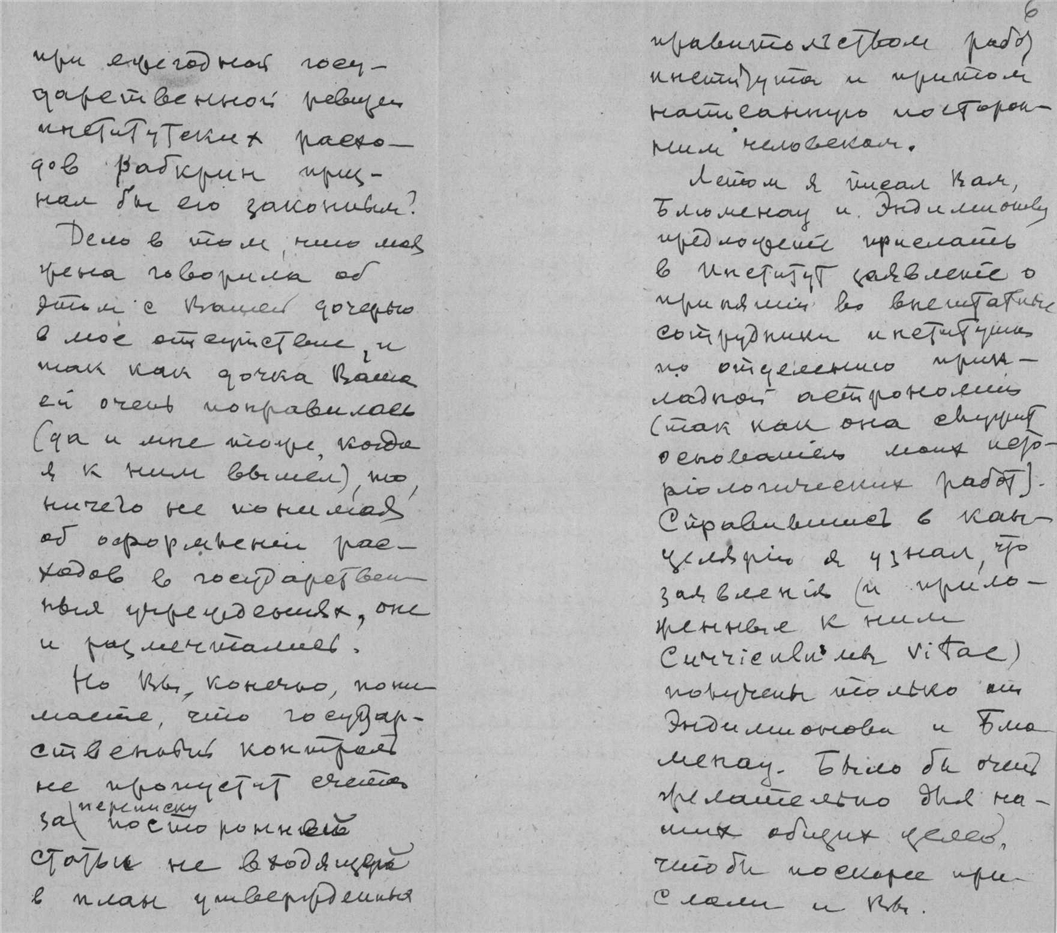 при ежегодной госу-
дарственной ревизии
институтских расхо-
дов Рабкрин приз-
нал бы его законным?
Дело в том, что моя
жена говорила об
этом с Вашей дочерью
в мое отсутствие, и
так как дочка Ваша
ей очень понравилась
(да и мне тоже, когда
я к ним вышел), то,
ничего не понимая
об оформлении рас-
ходов в государствен-
ных учреждениях, они
и размечтались.
Но Вы, конечно, пони-
маете, что государ-
ственный контроль
не пропустит счета
за переписку посторонней
статьи не входящей
в план утвержденных
6
правительством работ
института и притом
написанную посторон-
ним человеком.
Летом я писал Вам,
Блюменау и Эндимионову
предложение прислать
в Институт заявление о
принятии во внештатные
сотрудники института
по отделению прик-
ладной астрономии
(так как она служит
основанием моих исто-
риологических работ).
Справившись в кан-
целярію я узнал, что
заявленія (и прило-
женные к ним
Curriculum vitae)
получены только от
Эндимионова и Блю-
менау. Было бы очень
желательно для на-
ших общих целей,
чтобы поскорее при-
слали и Вы.